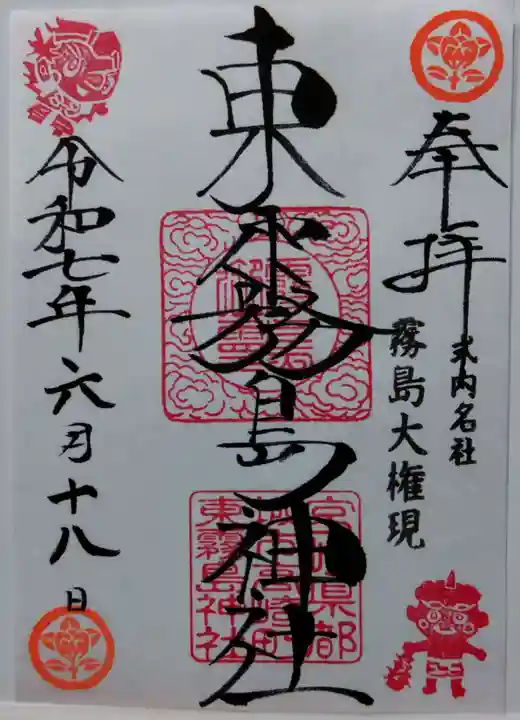 奉拝
式内名社
霧島大権現
東霧島神社
宮崎県都
東霧島神社
令和七年六月十八日